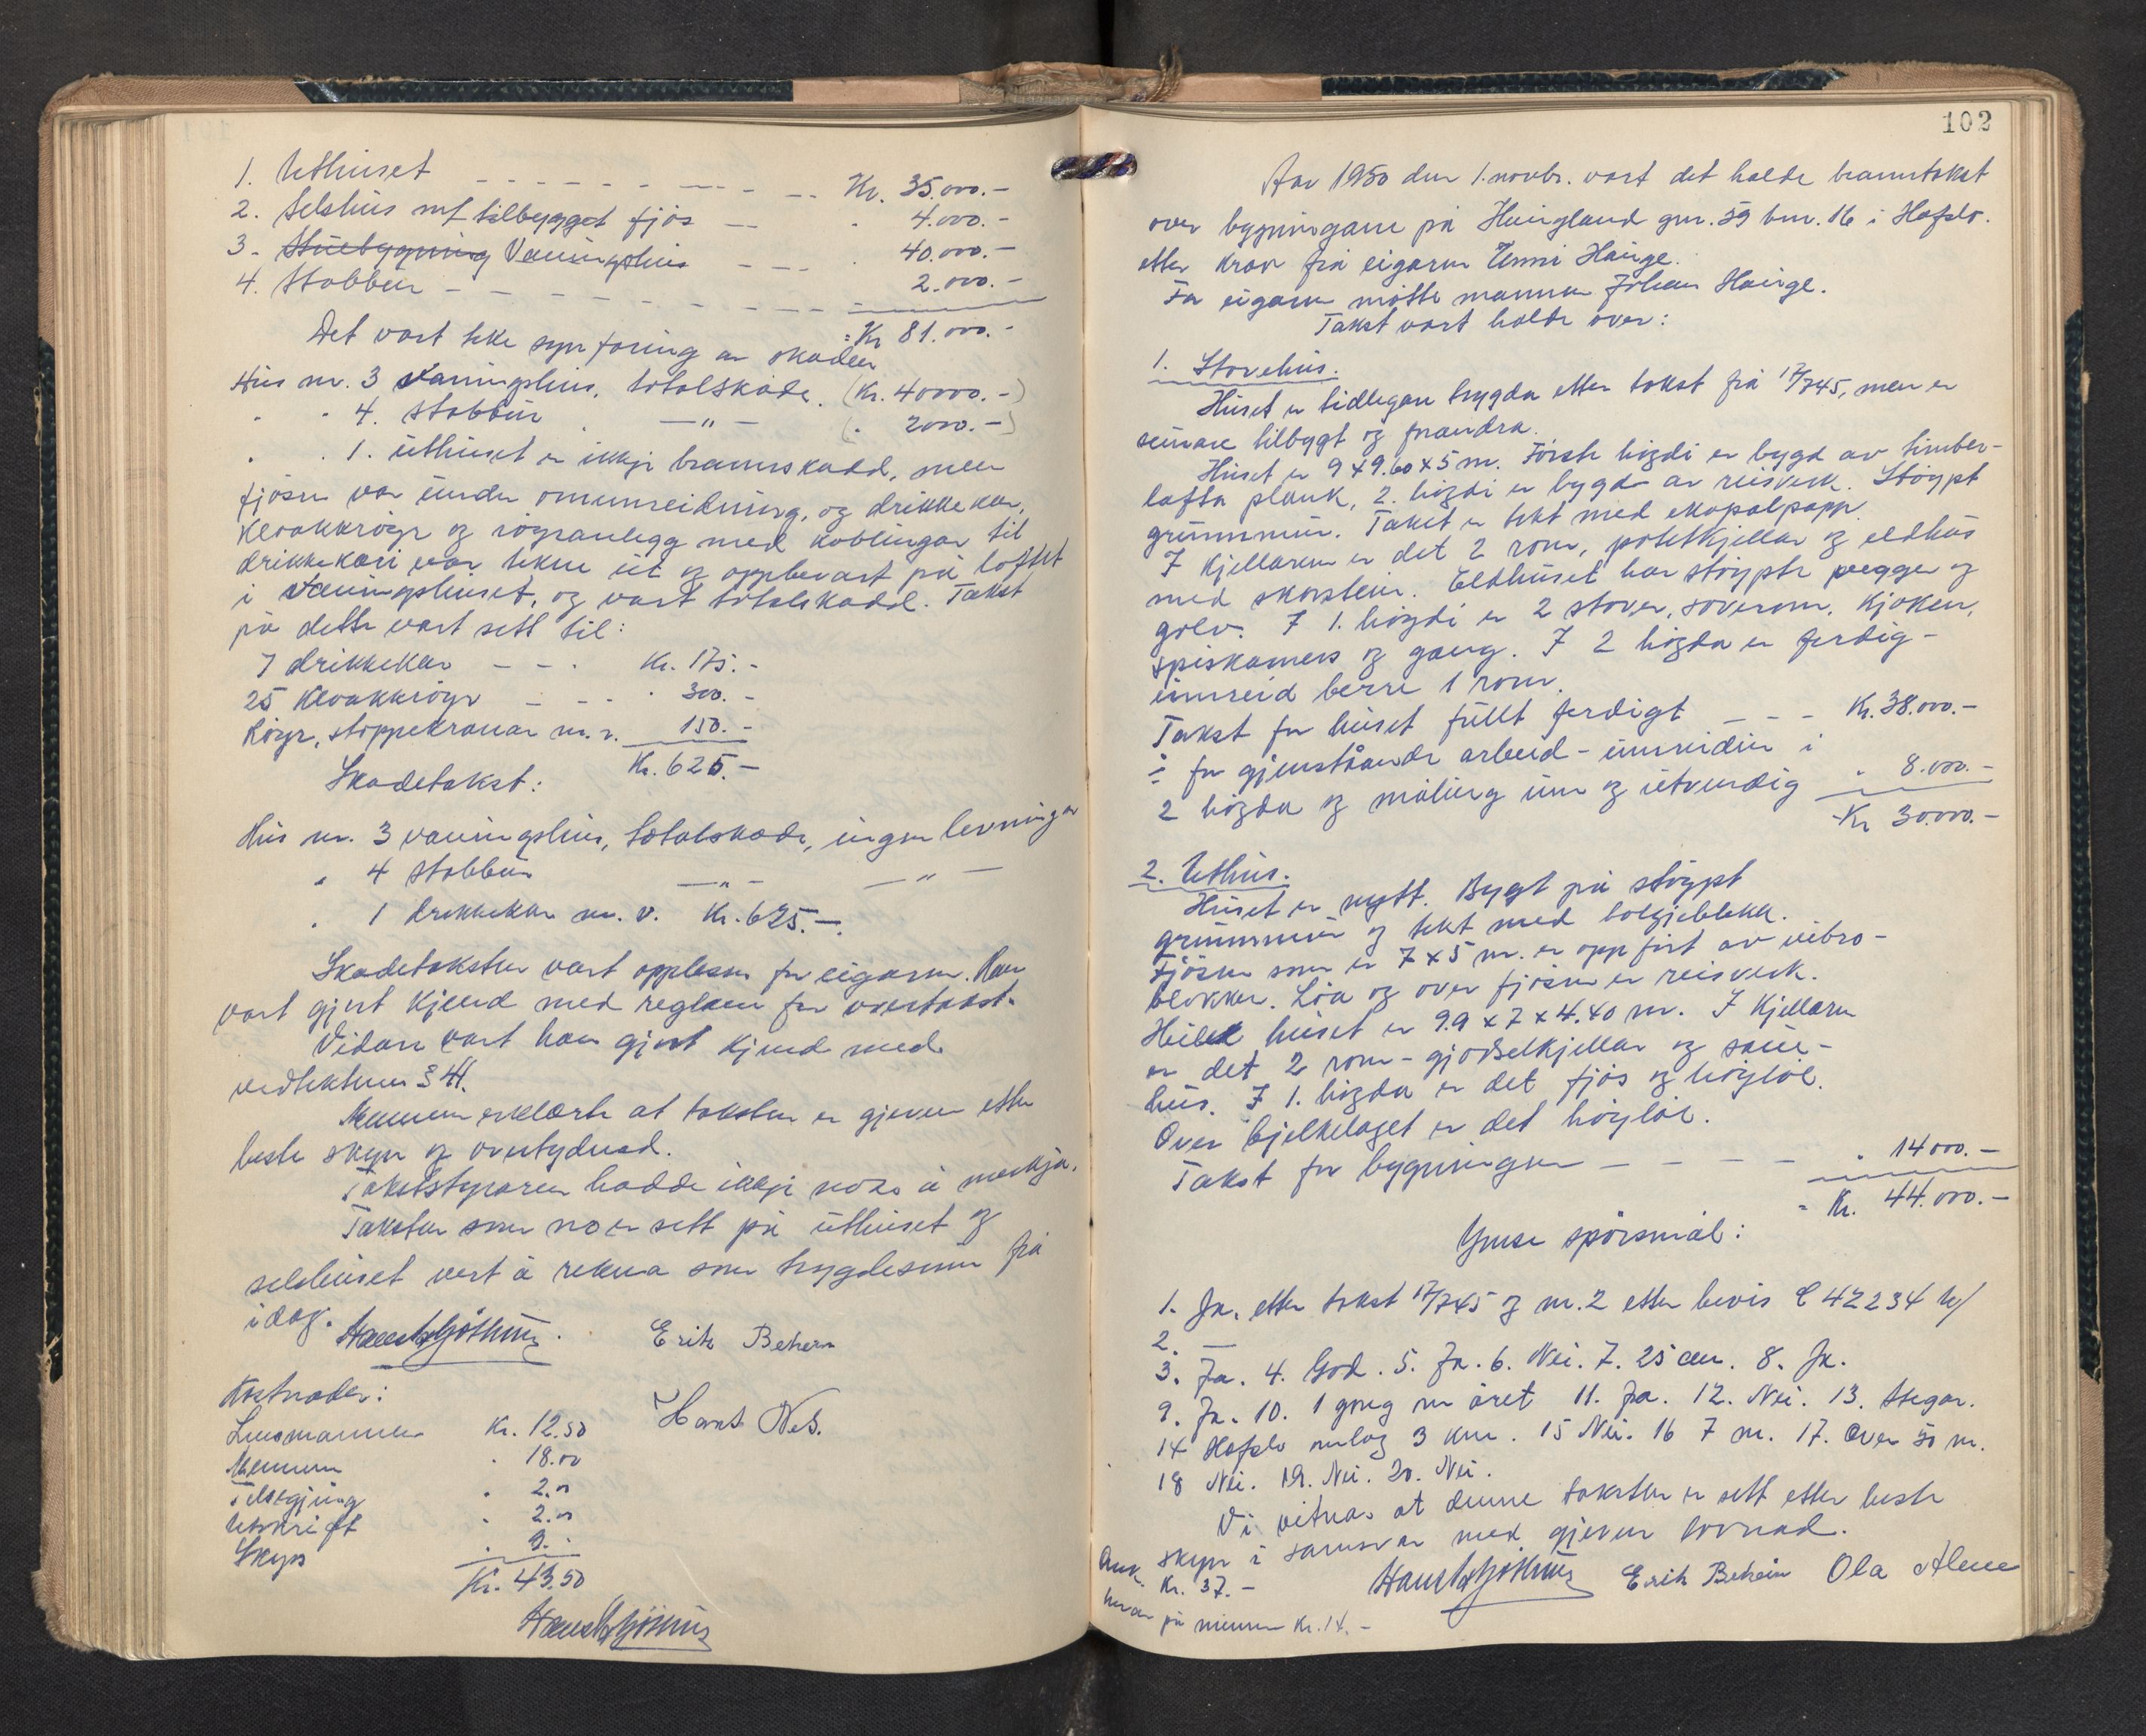 1. Uthuset - - - - - - - - - Kr. 35.000.-
2. Selshus m/ tilbygget fjös - - " 4.000.-
3. Stuebygning Vaaningshus - - - . 40.000.-
4. Stabbur - - - - - - - - - - 2.000.-
= Kr 81.000.-
Det vart teke synfaring av skaden
Hus nr. 3 Vaaningshus, totalskade. (Kr. 40000.-)
" " 4. Stabbur - " - (" 2000.-)
" " 1. uthuset er ikkje brannskadd, men
fjösen var under omunreidning, og drikkekar,
kloakkröyr og röyranlegg med koblingar til
drikkekari var tekne ut og oppbevart på loftet
i Vaaningshuset, og vart totalskadd. Takst
på dette vart sett til:
7 drikkekar - - . Kr. 175.-
25 Kloakkröyr - - - " 300.-
Röyr, stoppekranar m.v. 150.-
Kr. 625.-
Skadetakst:
Hus nr. 3 vaaningshus, totalskade, ingen levningar
" 4 Stabbur - " - - " -
" 1 drikkekar m.v. Kr. 625.-.
Skadetaksten vart opplesen for eigaren. Han
vart gjort kjend med reglane for overtakst.
Vidare vart han gjort kjend med
vedtektene § 41.
Mennene erklærte at taksten er gjeven etter
beste skyn og overtydnad.
Takststyraren hadde ikkje noko å merkja.
Taksten som no er sett på uthuset og
selshuset vert å rekna som trygdesum frå
idag.
Hans Gjøthun. Erik Beheim
Hans Nes.
Kostnader:
Lensmannen Kr. 12.50
Mennene " 18.00
Tilsegjing " 2.00
Utskrift " 2.00
Skyss " 9.-
Kr. 43.50
Hans Gjøthun
102
Aar 1950 den 1. novbr. vart det halde branntakst
over bygningane på Haugland gnr. 59 bnr. 16 i Hafslo.
etter krav frå eigaren Unni Hauge.
For eigaren møtte mannen Johan Hauge.
Takst vart halde over:
1. Stovehus.
Huset er tidlegare trygda etter takst frå 17/7 45, men er
seinare tilbygt og forandra.
Huset er 9 x 9.60 x 5 m. Förste högdi er bygd av timber-
lafta plank, 2. högdi er bygd av reisverk. Stöypt
grunnmur. Taket er tekt med ekopalpapp.
I kjellaren er det 2 rom, potetkjellar og eldhus
med skorstein. Eldhuset har stöypte vegger og
golv. I 1. högdi er 2 stover, soverom, kjøken,
spiskamers og gang. I 2 högda er ferdig-
innreid berre 1 rom.
Takst for huset fullt ferdigt - - - Kr. 38.000.-
÷ for gjenståande arbeid - innreidin i
2 högda og måling inn og utvendig " 8.000.-
Kr 30.000.-
2. Uthus.
Huset er nytt. Bygt på stöypt
grunnmur og tekt med bolgjeblekk.
Fjösen som er 7 x 5 m. er oppfört av vibro-
blokker. Löa og over fjösen er reisverk.
Heile huset er 9.9 x 7 x 4.40 m. I kjellaren
er det 2 rom - gjödselkjellar og saue-
hus. I 1. högda er det fjös og höyløe.
Over bjelkelaget er det höyløe.
Takst for bygningen - - - - " 14000.-
= Kr. 44.000.-
Ymse spörsmål:
1. Ja, etter takst 17/7 45 og nr. 2 etter bevis C 42234 
2. —
3. Ja. 4. God. 5. Ja. 6. Nei. 7. 25 cm. 8. Ja.
9. Ja. 10. 1 gong um året 11. Ja. 12. Nei. 13. Stegar.
14 Hafslo 3 km. 15 Nei. 16 7 m. 17. Over 50 m.
18 Nei. 19. Nei. 20. Nei.
Vi vitnar at denne taksten er sett etter beste
skyn i samsvar med gjeven lovnad.
Kr. 37.-
Hans Gjøthun Erik Beheim Ola Alme
på mennene Kr. 14.-